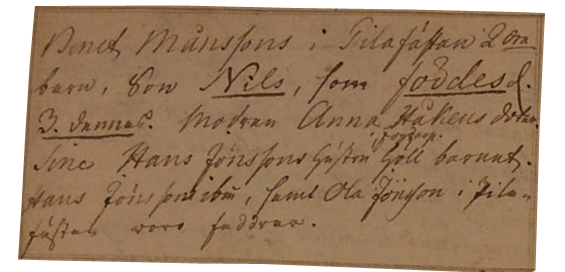 Bengt Månssons i Pilafästan 2 dra
barn, Son Nils, som föddes d.
3. dennes. Modren Anna Håkens dotter.
i Torrarp.
Sine Hans Jönssons Hustru höll barnet.
Hans Jönsson ibm, samt Ola Jönsson i Pila-
fästan woro faddrar.